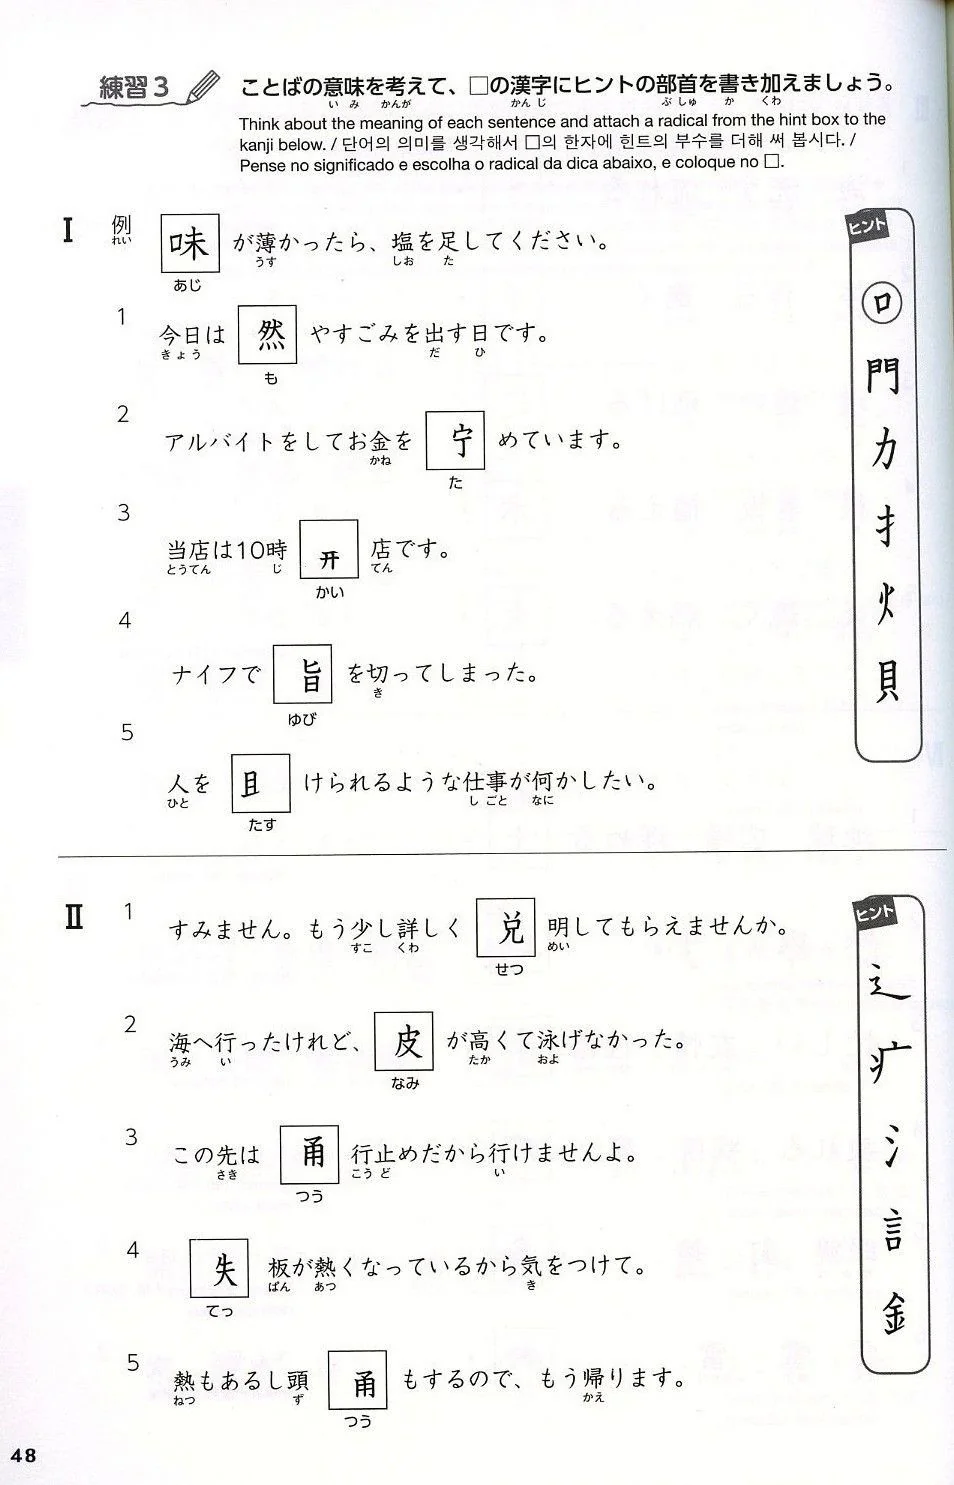 練習3 ことばの意味を考えて、□の漢字にヒントの部首を書き加えましょう。
いみ かんが かんじ ぶしゅ か くわ
Think about the meaning of each sentence and attach a radical from the hint box to the
kanji below. / 단어의 의미를 생각해서 □의 한자에 힌트의 부수를 더해 써 봅시다. /
Pense no significado e escolha o radical da dica abaixo, e coloque no □.
I 例 味 が薄かったら、塩を足してください。
れい あじ うす しお た
1 今日は 然 やすごみを出す日です。
きょう も だ ひ
2 アルバイトをしてお金を 宁 めています。
かね た
3 当店は10時 开 店です。
とうてん じ かい てん
4 ナイフで 旨 を切ってしまった。
ゆび き
5 人を 且 けられるような仕事が何かしたい。
ひと たす しごと なに
ヒント
口
門
力
扌
火
貝
II 1 すみません。もう少し詳しく 兑 明してもらえませんか。
すこ くわ せつ めい
2 海へ行ったけれど、 皮 が高くて泳げなかった。
うみ い なみ たか およ
3 この先は 甬 行止めだから行けませんよ。
さき つう こうど い
4 失 板が熱くなっているから気をつけて。
てっ ぱん あつ き
5 熱もあるし頭 甬 もするので、もう帰ります。
ねつ ず つう かえ
ヒント
辶
疒
氵
言
金
48